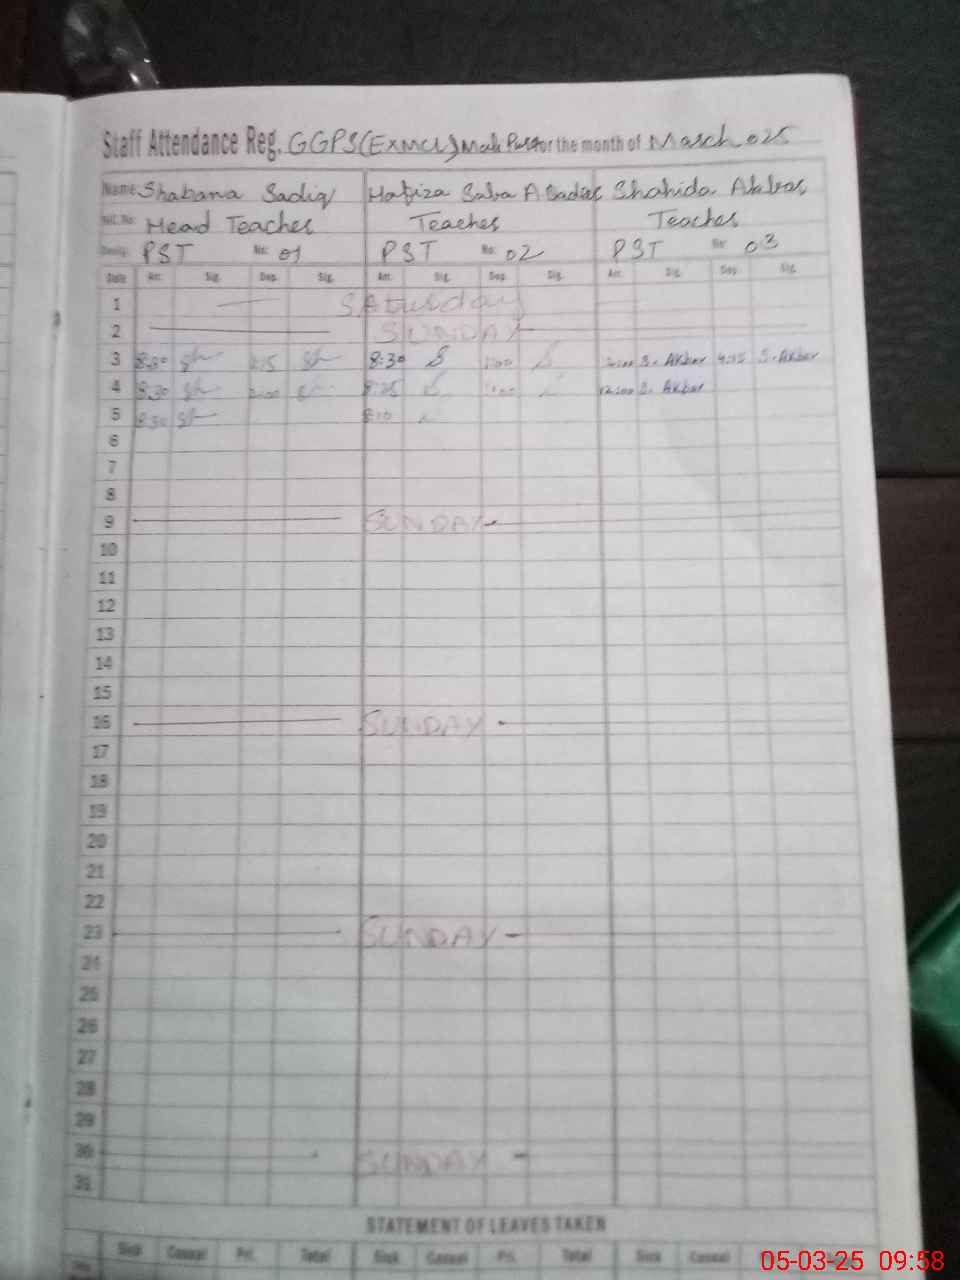 Staff Attendance Reg. GGPS (Ex MCL) for the month of March 025
Name: Shabana Sadiq Hafiza Saba A Shahida Akbar
Head Teacher Teacher Teacher
Desig: PST No: 01 PST No: 02 PST No: 03
Date Arr. Sig. Dep. Sig. Arr. Sig. Dep. Sig. Arr. Sig. Dep. Sig.
1 Saturday
2 SUNDAY
3 8:30 Sh 1:15 Sh 8:30 S 1:00 S S. Akbar 4:15 S. Akbar
4 8:30 Sh Sh 8:25 S 12:00 S. Akbar
5 8:30 Sh 8:10
6
7
8
9 SUNDAY
10
11
12
13
14
15
16 SUNDAY
17
18
19
20
21
22
23 SUNDAY
24
25
26
27
28
29
30 SUNDAY
31
STATEMENT OF LEAVES TAKEN
Sick Casual Pri. Total Sick Casual Pri. Total Sick Casual
05-03-25 09:58